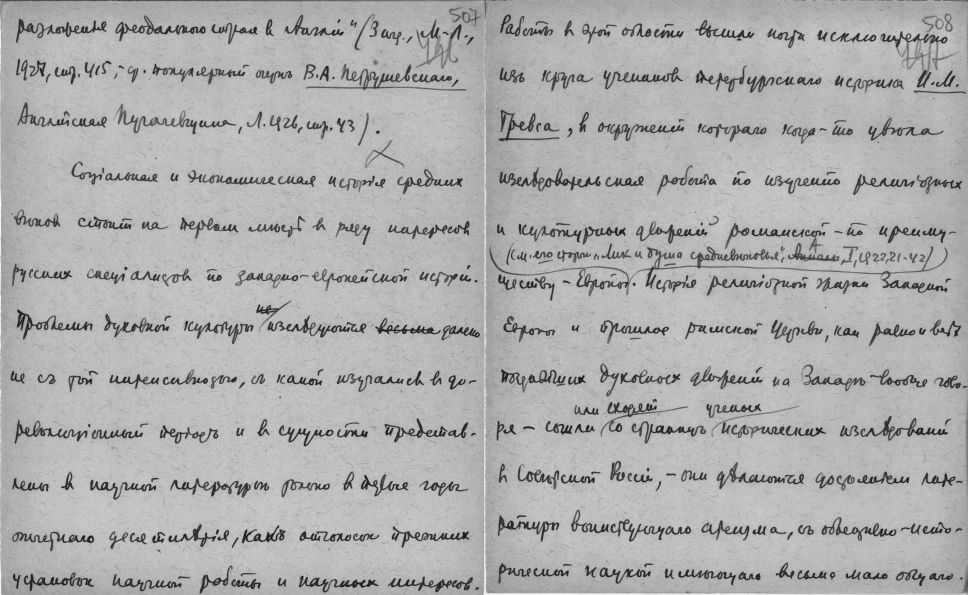 507
разложенья феодального строя в Англіи" (Зап., М.-Л.,
1927, стр. 415; - ср. популярный очерк В.А. Петрушевскаго,
Английская Пугачевщина, Л. 1926, стр. 43).
Соціальная и экономическая исторія средних
вѣков стоит на первом мѣстѣ в ряду интересов
русских спеціалистов по западно-европейской исторіи.
Проблемы духовной культуры не изслѣдуются весьма далеко
не съ той интенсивностью, съ какой изучались в до-
революціонный періодъ и в сущности представ-
лены в научной литературѣ только в первые годы
отчетнаго десятилѣтія, какъ отголосок прежних
установок научной работы и научных интересов.
508
Работы в этой области вышли тогда исключительно
изъ круга учеников петербургскаго историка И.М.
Гревса, в окруженіи котораго когда-то цвѣла
изслѣдовательская работа по изученію религіозных
и культурных движеній романской - по преиму-
(см. его статью „Лик и душа средневѣковья", Анналы, I, 1922, 21-42)
ществу - Европы. Исторія религіозной жизни Западной
Европы и прошлое римской Церкви, как равно и всѣх
позднѣйших духовных движеній на Западѣ - вообще гово-
или сходят ученых
ря - сошли со страниц исторических изслѣдованій
в Совѣтской Россіи, - они дѣлаются достояніем лите-
ратуры воинствующаго атеизма, съ объективно-исто-
рической наукой имѣющаго весьма мало общаго.